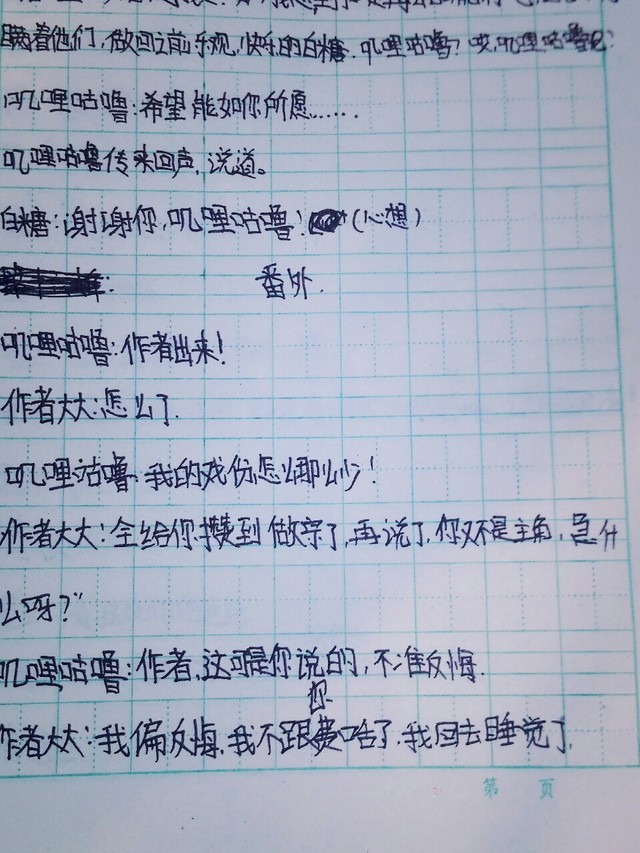 瞒着他们，做回之前乐观，快乐的白糖。叽哩咕噜？哎，叽哩咕噜呢？
叽哩咕噜：希望能如你所愿……
叽哩咕噜传来回声，说道。
白糖：谢谢你，叽哩咕噜！（心想）
番外.
叽哩咕噜：作者出来！
作者大大：怎么了.
叽哩咕噜：我的戏份怎么那么少！
作者大大：全给你攒到做亲了，再说了，你又不是主角，急什
么呀？”
叽哩咕噜：作者，这可是你说的，不准反悔.
你
作者大大：我偏反悔，我不跟费啥了.我回去睡觉了.
第 页